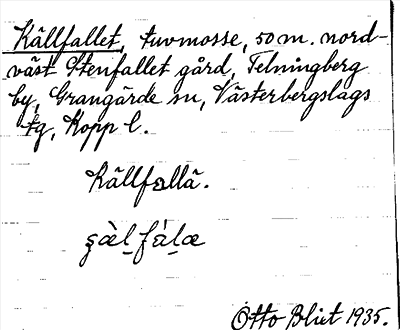 Källfallet, tuvmosse, 50 m. nord-
väst Stenfallet gård, Telningberg
by, Grangärde sn, Västerbergslags
tg, Kopp l.
Källfallä.
Otto Blixt 1935.